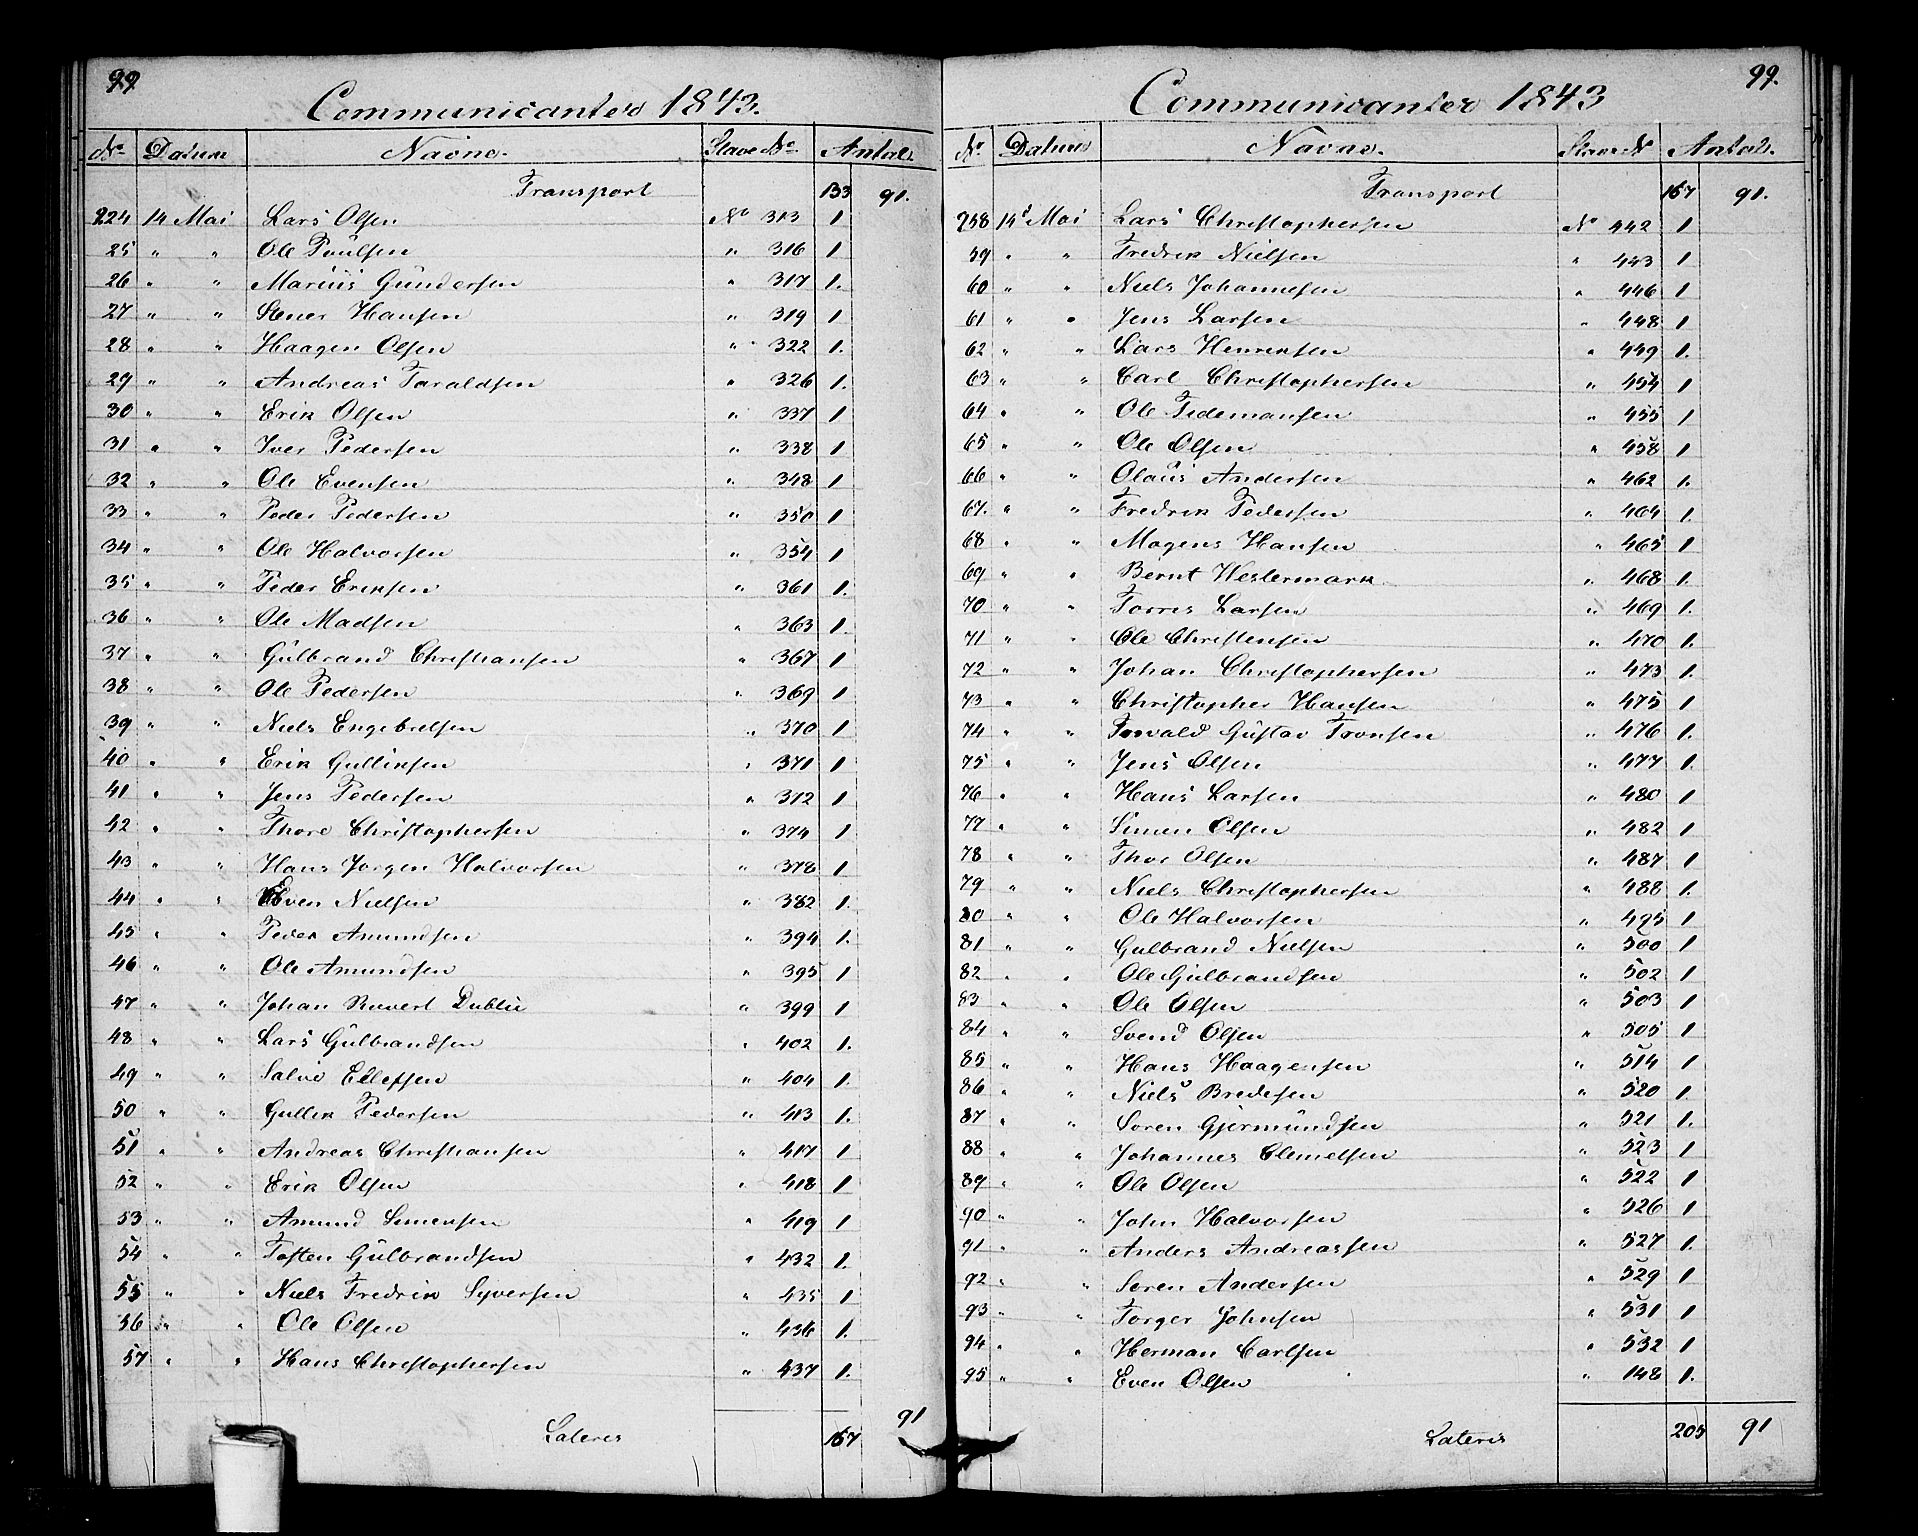 99
Communicanter 1843.
No Datum Navne. Slave No Antal.
Transport 133 91.
224 14 Mai Lars Olsen No 313 1
25 " " Ole Poulsen " 316 1
26 " " Marius Gundersen " 317 1.
27 " " Stener Hansen " 319 1
28 " " Haagen Olsen " 322 1.
29 " " Andreas Taraldsen " 326 1.
30 " " Erik Olsen " 337 1
31 " " Iver Pedersen " 338 1
32 " " Ole Evensen " 348 1
33 " " Peder Pedersen " 350 1
34 " " Ole Halvorsen " 354 1
35 " " Peder Eriksen " 361 1.
36 " " Ole Madsen " 363 1.
37 " " Gulbrand Christiansen " 367 1
38 " " Ole Pedersen " 369 1
39 " " Niels Engebretsen " 370 1
40 " " Erik Gulliksen " 371 1
41 " " Jens Pedersen " 372 1
42 " " Thore Christophersen " 374 1
43 " " Hans Jørgen Halvorsen " 378 1
44 " " Even Nielsen " 382 1.
45 " " Peder Amundsen " 394 1.
46 " " Ole Amundsen " 395 1
47 " " Johan Dublin " 399 1
48 " " Lars Gulbrandsen " 402 1.
49 " " Salve Ellefsen " 404 1.
50 " " Gullik Pedersen " 413 1.
51 " " Andreas Christiansen " 417 1
52 " " Erik Olsen " 418 1
53 " " Amund Simensen " 419 1
54 " " Tosten Gulbrandsen " 432 1.
55 " " Niels Fredrik Syversen " 435 1
56 " " Ole Olsen " 436 1.
57 " " Hans Christophersen " 437 1.
Lateris 167 91
99.
Communicanter 1843
No Datum Navne. Slave No Antal.
Transport 167 91.
258 14d Mai Lars Christophersen No 442 1
59 " " Fredrik Nielsen " 443 1
60 " " Niels Johannesen " 446 1
61 " " Jens Larsen " 448 1
62 " " Lars Henriksen " 449 1.
63 " " Carl Christophersen " 454 1
64 " " Ole Tidemansen " 455 1
65 " " Ole Olsen " 458 1
66 " " Olaus Andersen " 462 1.
67. " " Fredrik Pedersen " 464 1.
68 " " Mogens Hansen " 465 1
69 " " Bernt Westermark " 468 1.
70 " " Torris Larsen " 469 1.
71 " " Ole Christensen " 470 1.
72 " " Johan Christophersen " 473 1.
73 " " Christopher Hansen " 475 1
74 " " Torvald Gustav Tronsen " 476 1.
75 " " Jens Olsen " 477 1.
76 " " Hans Larsen " 480 1
77 " " Simen Olsen " 482 1
78 " " Thor Olsen " 487 1
79 " " Niels Christophersen " 488 1.
80 " " Ole Halvorsen " 495 1
81 " " Gulbrand Nielsen " 500 1
82 " " Ole Gulbrandsen " 502 1
83 " " Ole Olsen " 503 1
84 " " Svend Olsen " 505 1
85 " " Hans Haagensen " 514 1
86 " " Niels Bredesen " 520 1
87 " " Søren Gjermundsen " 521 1.
88 " " Johannes Clemetsen " 523 1
89 " " Ole Olsen " 522 1
90 " " John Halvorsen " 526 1
91 " " Anders Andreassen " 527 1.
92 " " Søren Andersen " 529 1
93 " " Torger Johnsen " 531 1
94 " " Herman Carlsen " 532 1
95 " " Even Olsen " 148 1.
Lateris 205 91